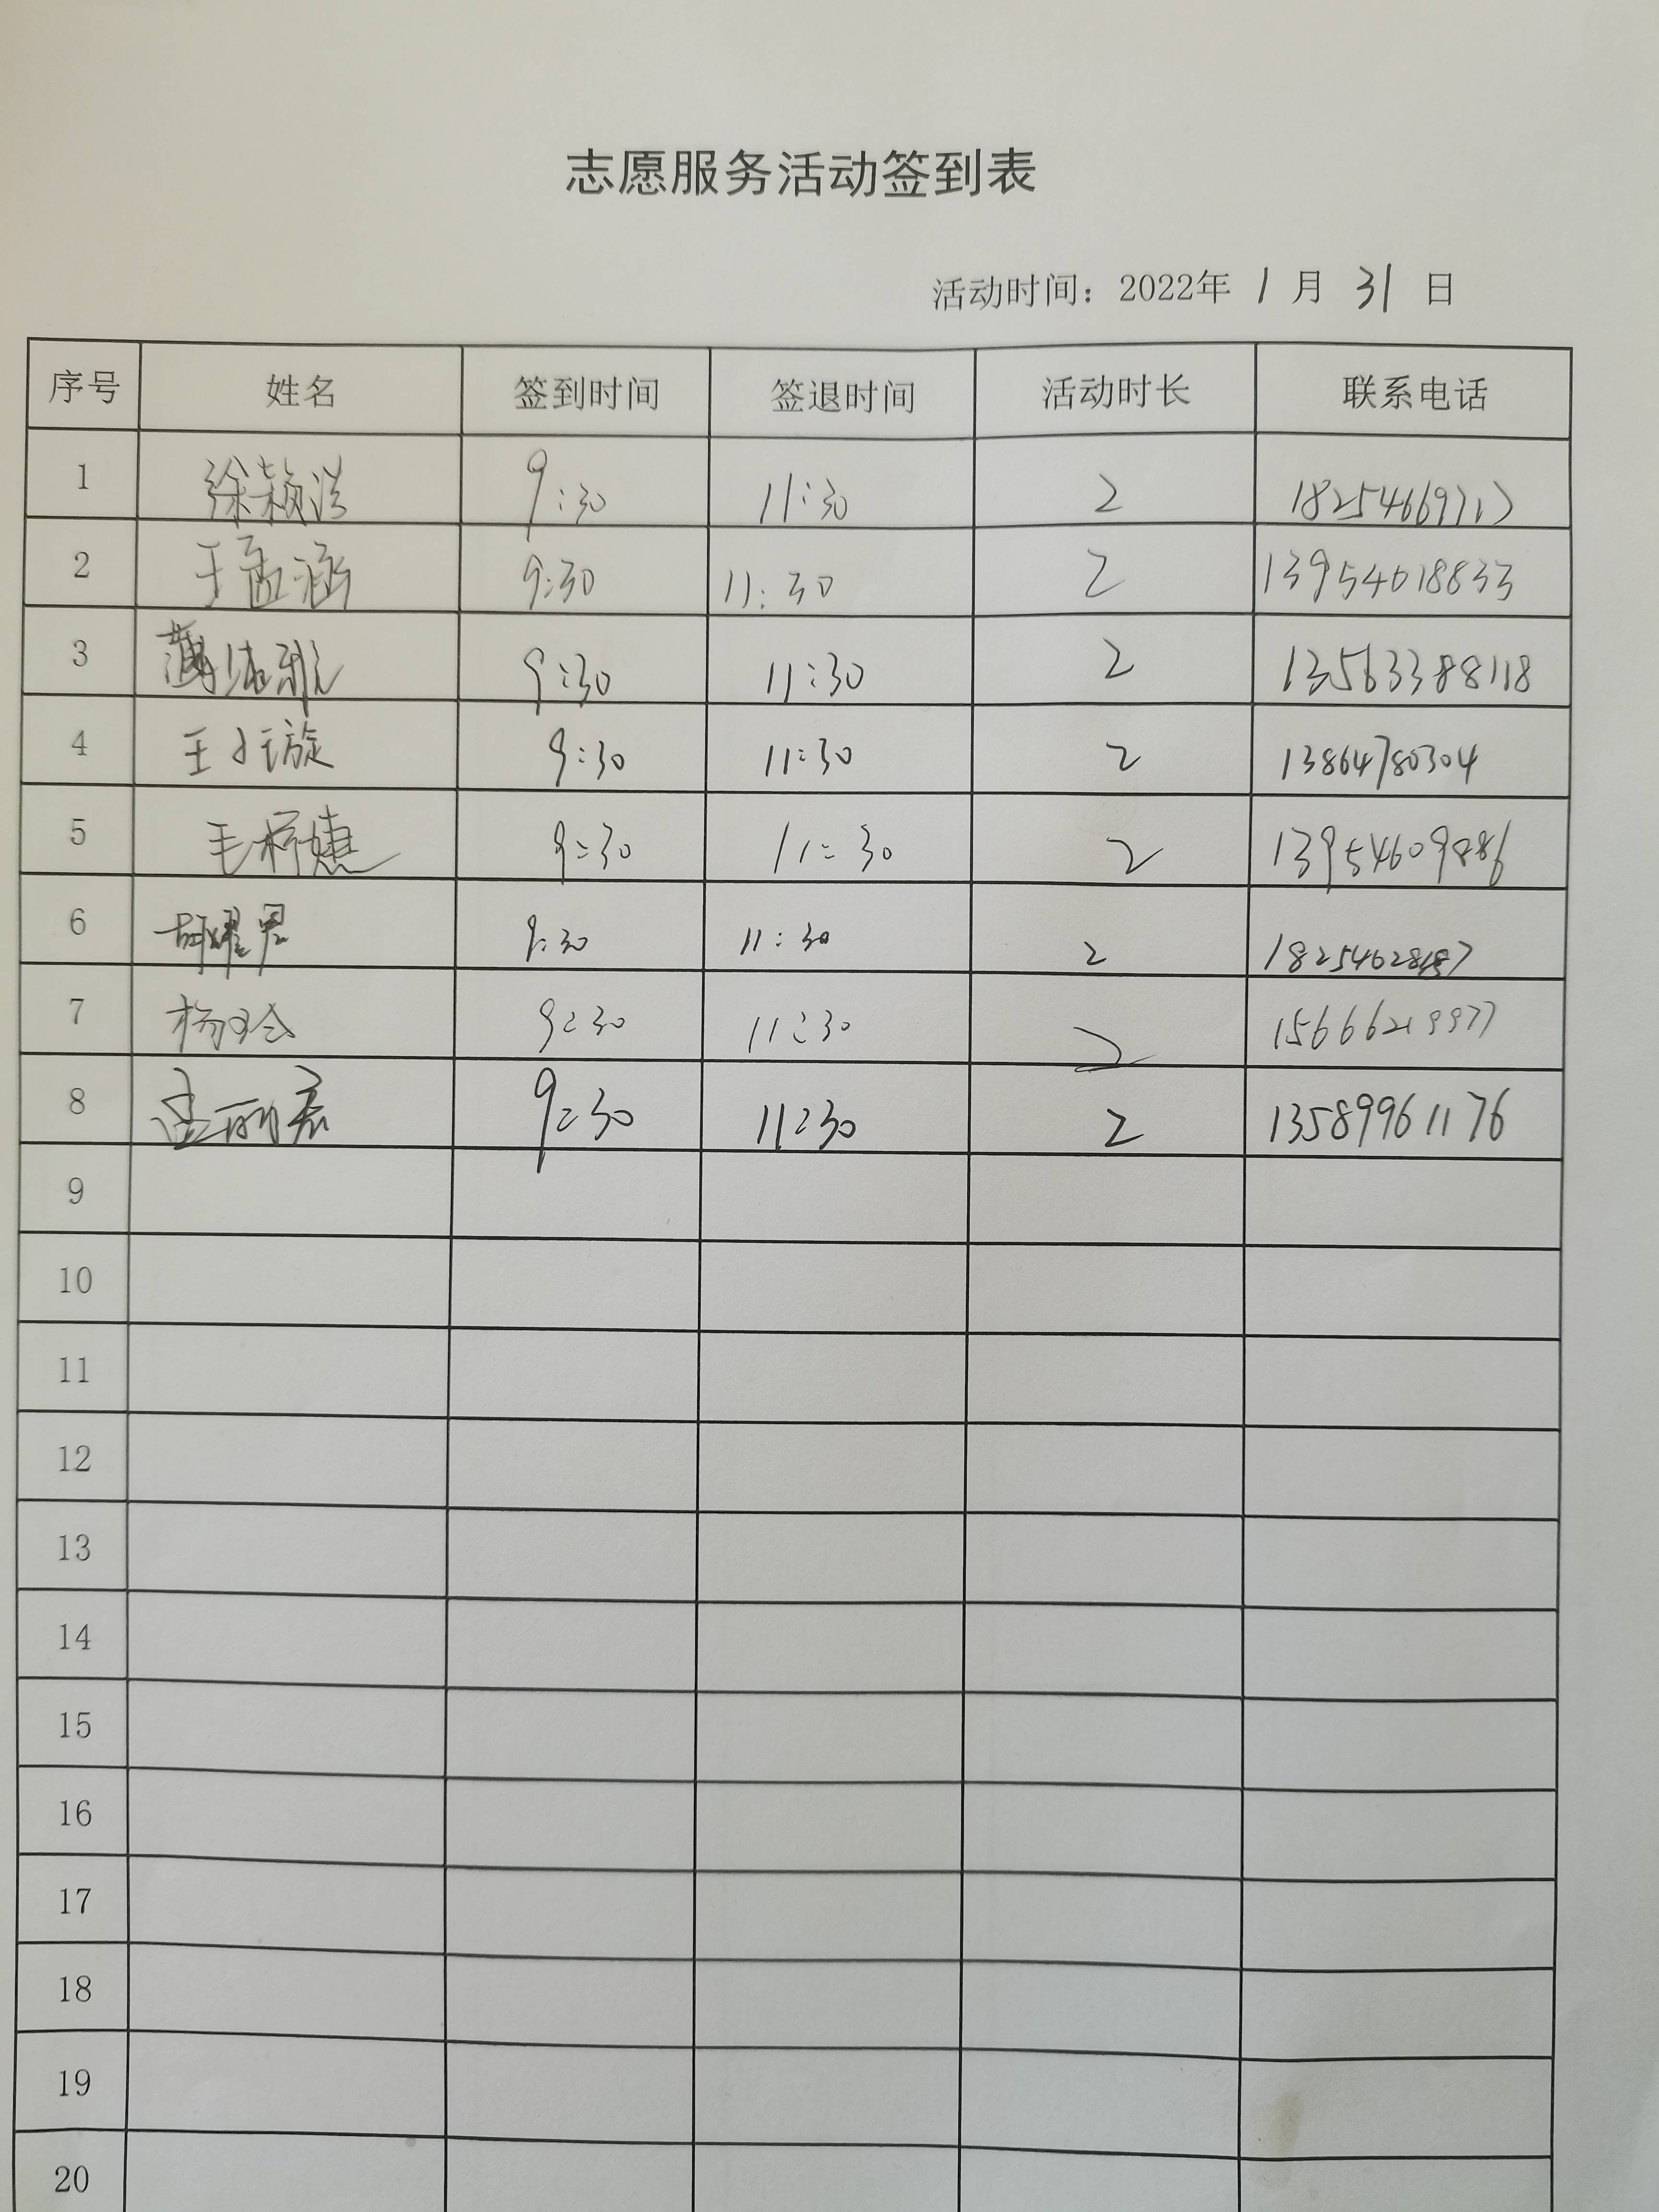 志愿服务活动签到表
活动时间：2022年 1 月 31 日
序号 姓名 签到时间 签退时间 活动时长 联系电话
1 徐颖洪 9:30 11:30 2
2 于孟涵 9:30 11:30 2 13954618833
3 薄洁雅 9:30 11:30 2 13563388118
4 王小璇 9:30 11:30 2 13864780304
5 毛 9:30 11:30 2 13954609886
6 胡耀 9:30 11:30 2
7 杨玲 9:30 11:30 2 15666219977
8 孟丽君 9:30 11:30 2 13589961176
9
10
11
12
13
14
15
16
17
18
19
20